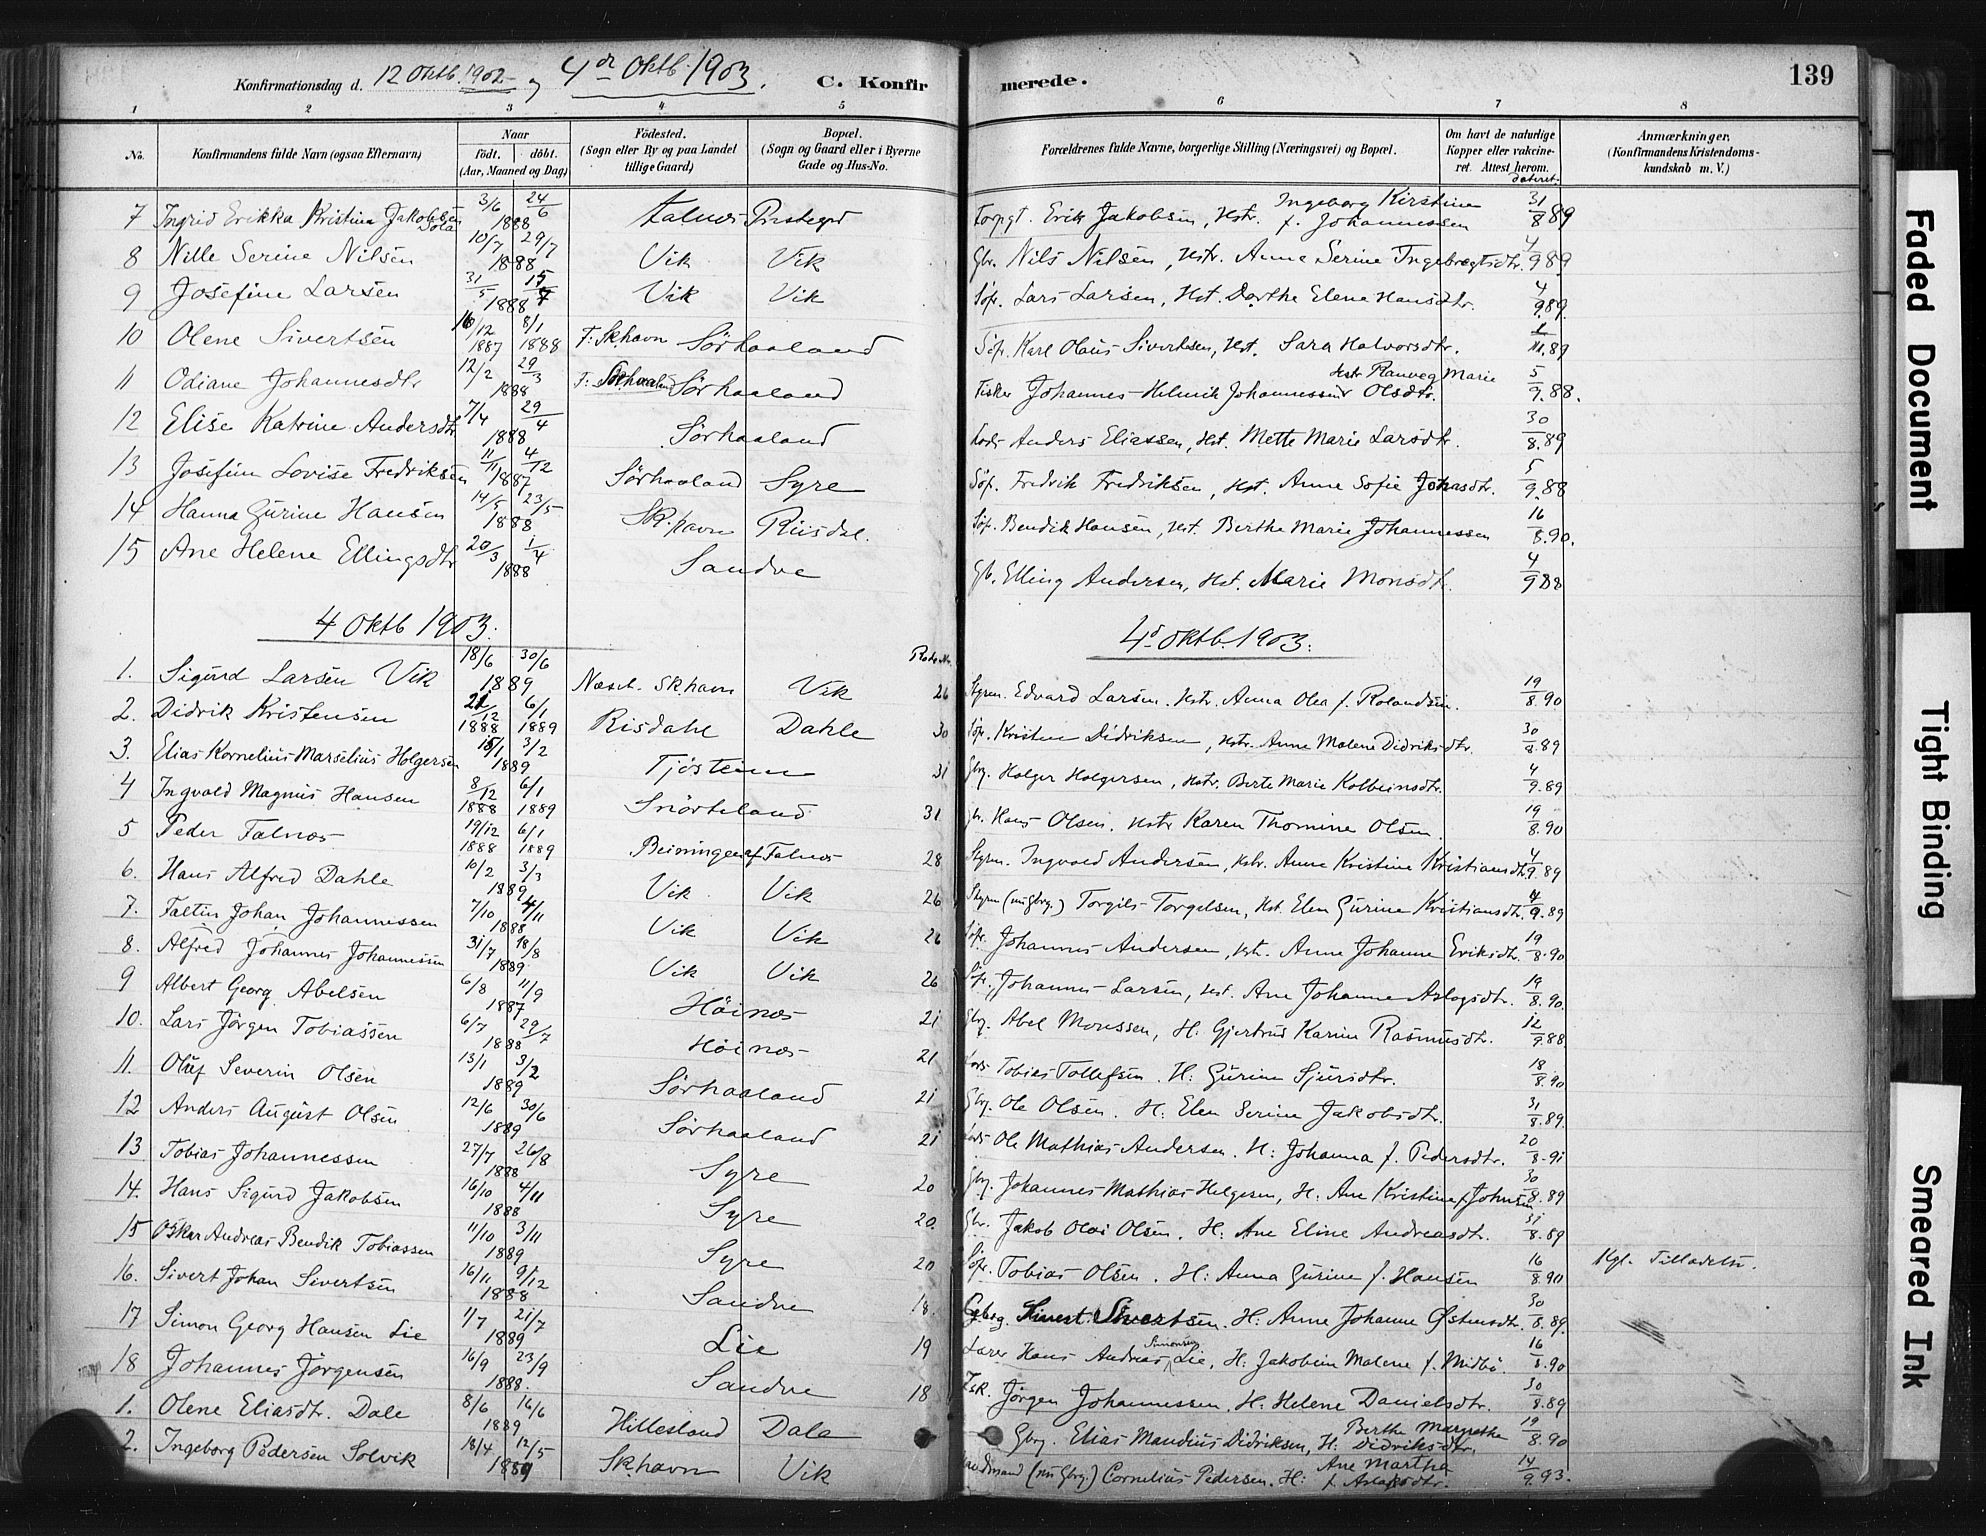 Konfirmationsdag d. 12 Oktb. 1902 og 4de Oktb 1903. C. Konfirmerede. 139
1 2 3 4 5 6 7 8
No. Konfirmandens fulde Navn (ogsaa Efternavn) Naar født. døbt. (Aar, Maaned og Dag) Fødested. (Sogn eller By og paa Landet tillige Gaard) Bopæl. (Sogn og Gaard eller i Byerne Gade og Hus-No. Forældrenes fulde Navne, borgerlige Stilling (Næringsvei) og Bopæl. Om havt de naturlige Kopper eller vakcineret. Attest herom. dateret. Anmærkninger, (Konfirmandens Kristendomskundskab m. V.)
7 Ingrid Erikka Kristina Jakobsen 3/6 24/6 1888 Falnes Prestegd Erik Jakobsen, Hstr. Ingeborg Kirstine f. Johannessen 31/8 89
8 Nille Serine Nilsen 10/7 29/7 1888 Vik Vik Gbr. Nils Nilsen, Hstr. Anna Serine Ingebregtsdtr. 4/9 89
9 Josefine Larsen 31/5 15/7 1888 Vik Vik Søf. Lars Larsen, Hst. Dorthe Elene Hansdtr. 4/9 89.
10 Olene Sivertsen 16/12 1887 8/1 1888 F: Skhavn Sørhaaland Søf. Karl Olaus Sivertsen, Hst. Sara Halvorsdtr. 1/11.89
11 Odiane Johannesdtr 12/2 29/3 1888 F: Sørhaaland Sørhaaland Fisker Johannes Helmik Johannessen Hstr Ranveg Marie Olsdtr. 5/9.88.
12 Elise Katrine Andersdtr 7/4 29/4 1888 Sørhaaland Lods Anders Eliassen, Hst. Mette Marie Larsdtr. 30/8.89
13 Josefine Lovise Fredriksen 11/11 4/12 1887 Sørhaaland Syre Søf. Fredrik Fredriksen, Hst. Anne Sofie Johasdtr. 5/9.88
14 Hanna Gurine Hansen 14/5 23/5 1888 Sk.havn Riisdal. Søf. Bendik Hansen, Hst. Berthe Marie Johannessen 16/8.90.
15 Ane Helene Ellingsdtr 20/3 1/4 1888 Sandve Gb. Elling Andersen, Hst. Marie Monsdtr. 4/9 88
4 Oktb 1903. 4d Oktb. 1903.
Rode No.
1. Sigurd Larsen Vik 18/6 30/6 1889 Næset. Skhavn Vik 26 Styrm. Edvard Larsen. Hstr. Anna Olea f. Rolandsen. 19/8.90
2. Didrik Kristensen 21/12 1888 6/1 1889 Risdahl Dahle 30 Søf. Kristen Didriksen, Hstr. Anne Malene Didriksdtr. 30/8.89
3. Elias Kornelius Marselius Holgersen 15/1 3/2 1889 Tjøsteim 31 Gbrg. Holger Holgersen, Hstr. Berte Marie Kolbeinsdtr. 4/9.89
4 Ingvald Magnus Hansen 8/12 1888 6/1 1889 Snørteland 31 Gb. Hans Olsen. Hstr Karen Thomine Olsen. 19/8.90
5 Peder Falnes 19/12 1888 6/1 1889 Beiningen af Falnes 28 Styrm. Ingvald Andersen, Hstr. Anne Kristine Kristiansdtr. 4/9.89
6. Hans Alfred Dahle 10/2 3/3 1889 Vik Vik 26 Styrm (nu gbrg.) Torgils Torgelsen, Hst. Elen Gurine Kristiansdtr. 4/9.89
7. Faltin Johan Johannessen 7/10 4/11 1888 Vik Vik 26 Søf. Johannes Andersen, Hst. Anne Johanne Eriksdtr. 19/8.90
8. Alfred Johannes Johannessen 31/7 18/8 1889 Vik Vik 26 Søf. Johannes Larsen, Hst. Ane Johanne Aslagsdtr. 19/8.90.
9 Albert Georg Abelsen 6/8 11/9 1887 Høines 21 Gbrg. Abel Monssen, H: Gjertrud Karine Rasmusdtr. 12/9.88
10. Lars Jørgen Tobiassen 6/7 29/7 1888 Høines 21 Lods Tobias Tollefsen. H: Gurine Sjursdtr. 18/8.90
11. Oluf Severin Olsen 13/1 3/2 1889 Sørhaaland 21 Gbrg. Ole Olsen. H: Elen Serine Jakobsdtr. 31/8.89.
12 Anders August Olsen 12/6 30/6 1889 Sørhaaland 21 Lods Ole Mathias Andersen. H: Johanna f. Pedersdtr. 20/8.91
13 Tobias Johannessen 27/7 26/8 1888 Syre 20 Gbrg. Johannes Mathias Helgesen, H: Ane Kristine f. Johnsen 30/8.89
14. Hans Sigurd Jakobsen 16/10 4/11 1888 Syre 20. Gbr. Jakob Olai Olsen. H: Ane Eline Andreasdtr. 31/8.89
15 Oskar Andreas Bendik Tobiassen 11/10 3/11 1889 Syre 20 Søf. Tobias Olsen. H: Anna Gurine f. Hansen 16/8.90 Kgl. Tilladelse.
16. Sivert Johan Sivertsen 16/11 9/12 1888 Sandve 18. Gbrg. Sivert Sivertsen. H: Anne Johanne Østensdtr. 30/8.89.
17 Simon Georg Hansen Lie 1/7 21/7 1889 Lie 19 Lærer Hans Andreas Simonsen Lie, H: Jakobine Malene f. Midbø. 16/8.90
18 Johannes Jørgensen 16/9 23/9 1888. Sandve 18 Fsk. Jørgen Johannessen. H: Helene Danielsdtr. 30/8.89
1. Olene Eliasdtr. Dale 8/6 16/6 1889 Hillesland Dale Gbrg. Elias Mandius Didriksen, H: Berthe Margrethe Didriksdtr. 19/8.90
2. Ingeborg Pedersen Solvik 18/4 12/5 1889 Skhavn Vik (nu Gbrg.) Cornelius Pedersen. H: Ane Martha f. Aslaksdtr. 14/9.93.
Faded Document
Tight Binding
Smeared Ink